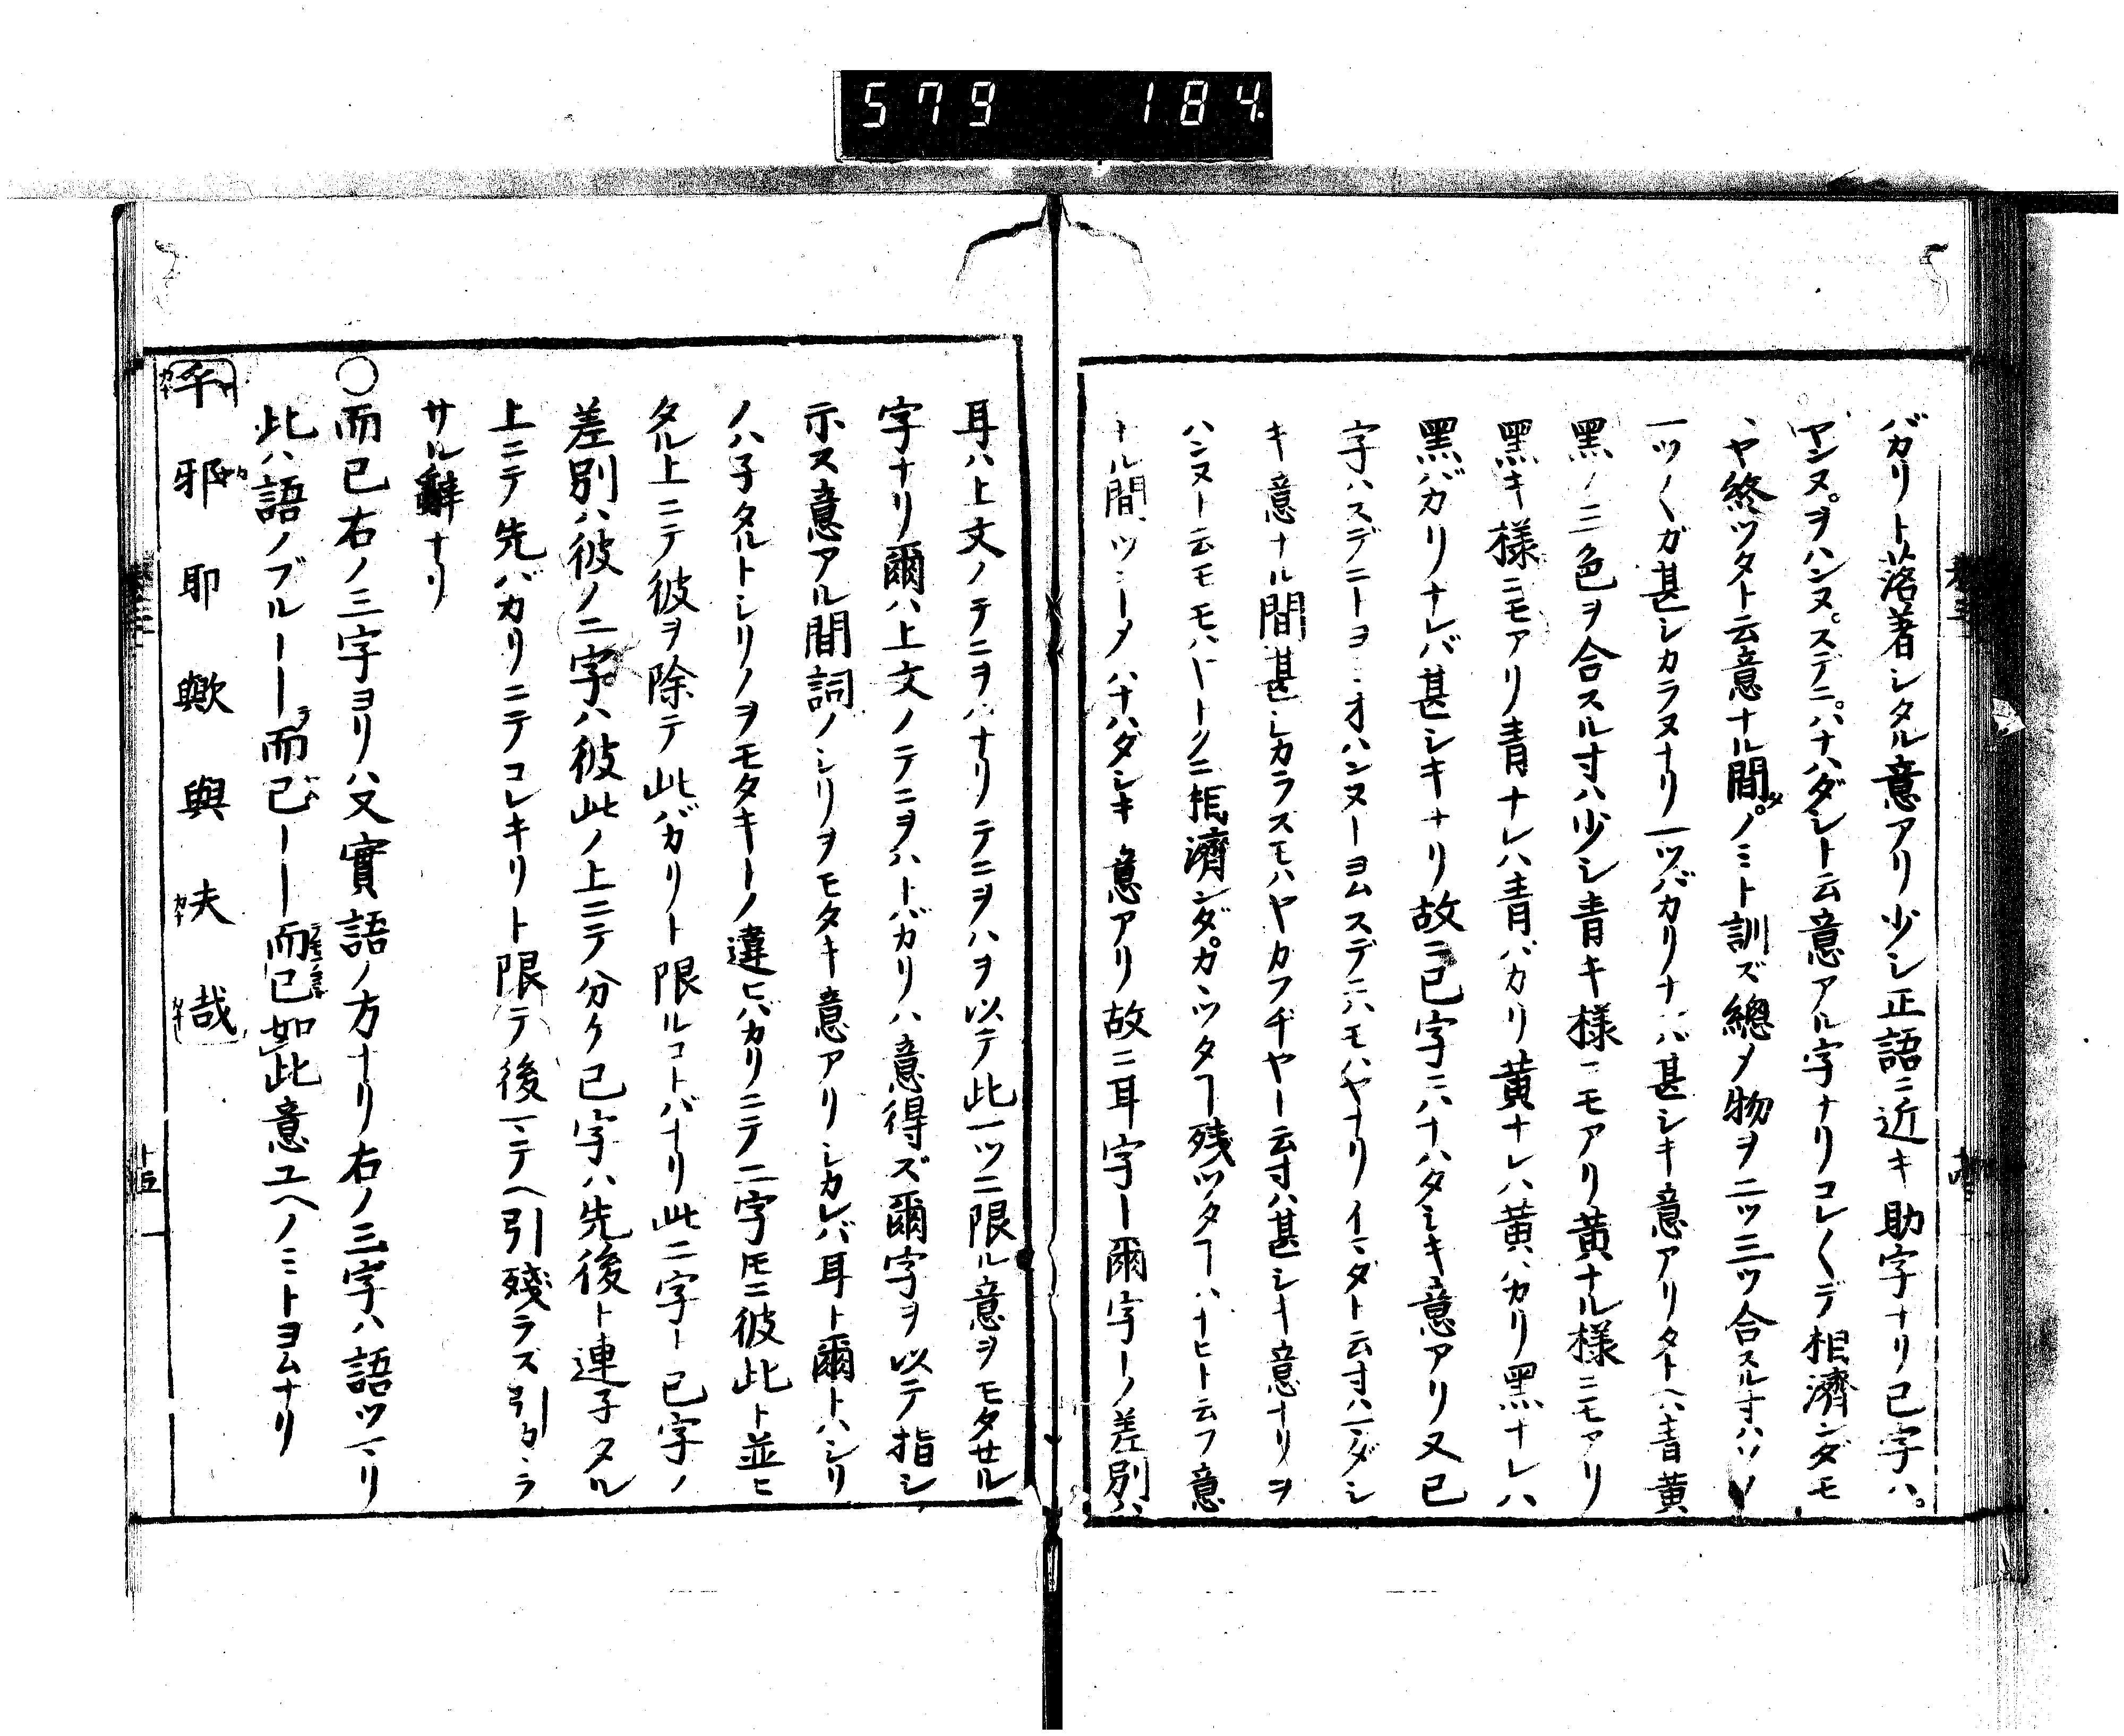 579 184
バカリト落着シタル意アリ少シ正語ニ近キ助字ナリ已字ハ。
ヤンヌ。ヲハンヌ。スデニ。ハナハダシト云意アル字ナリコレ〱デ相濟ンダモ
ヽヤ終ツタト云意ナル間。ノミト訓ズ總ノ物ヲ二ツ三ツ合スル寸ハソノ
一ツ〱ガ甚シカラヌナリ一ツバカリナレバ甚シキ意アリタトヘハ青黄
黑ノ三色ヲ合スル寸ハ少シ青キ様ニモアリ黄ナル様ニモアリ
黑キ様ニモアリ青ナレハ青バカリ黄ナレハ黄バカリ黑ナレハ
黑バカリナレバ甚シキナリ故ニ已字ニハナハタシキ意アリ又已
字ハスデニートヨミオハンヌーヨムスデニハモハヤナリイマダト云寸ハマダシ
キ意ナル間甚シカラスモハヤカフヂヤート云寸ハ甚シキ意ナリヲ
ハンヌート云モモハトートクニ相濟ンダカツタヿ残ツタヿハナヒト云フ意
ナル間ツーメハナハダシキ意アリ故ニ耳字ー爾字ーノ差別ハ
耳ハ上文ノテニヲハナリテニヲハヲ以テ此一ツニ限ル意ヲモタセル
字ナリ爾ハ上文ノテニヲハトバカリハ意得ズ爾字ヲ以テ指シ
示ス意アル間詞ノシリヲモタキ意アリシカレバ耳ト爾トハシリ
ノハ子タルトシリノヲモタキートノ違ヒバカリニテ二字𪜈ニ彼此ト並ヒ
タル上ニテ彼ヲ除テ此バカリト限ルコトバナリ此二字ト已字ノ
差別ハ彼ノ二字ハ彼此ノ上ニテ分ケ已字ハ先後ト連子タル
上ニテ先バカリニテコレキリト限テ後マテヘ引殘ラズ引カヽラ
サル辭ナリ
○而已右ノ三字ヨリハ又實語ノ方ナリ右ノ三字ハ語ツマリ
此ハ語ノブルーー而已ーー而已如此意ユヘノミトヨムナリ
乎邪耶歟與夫哉